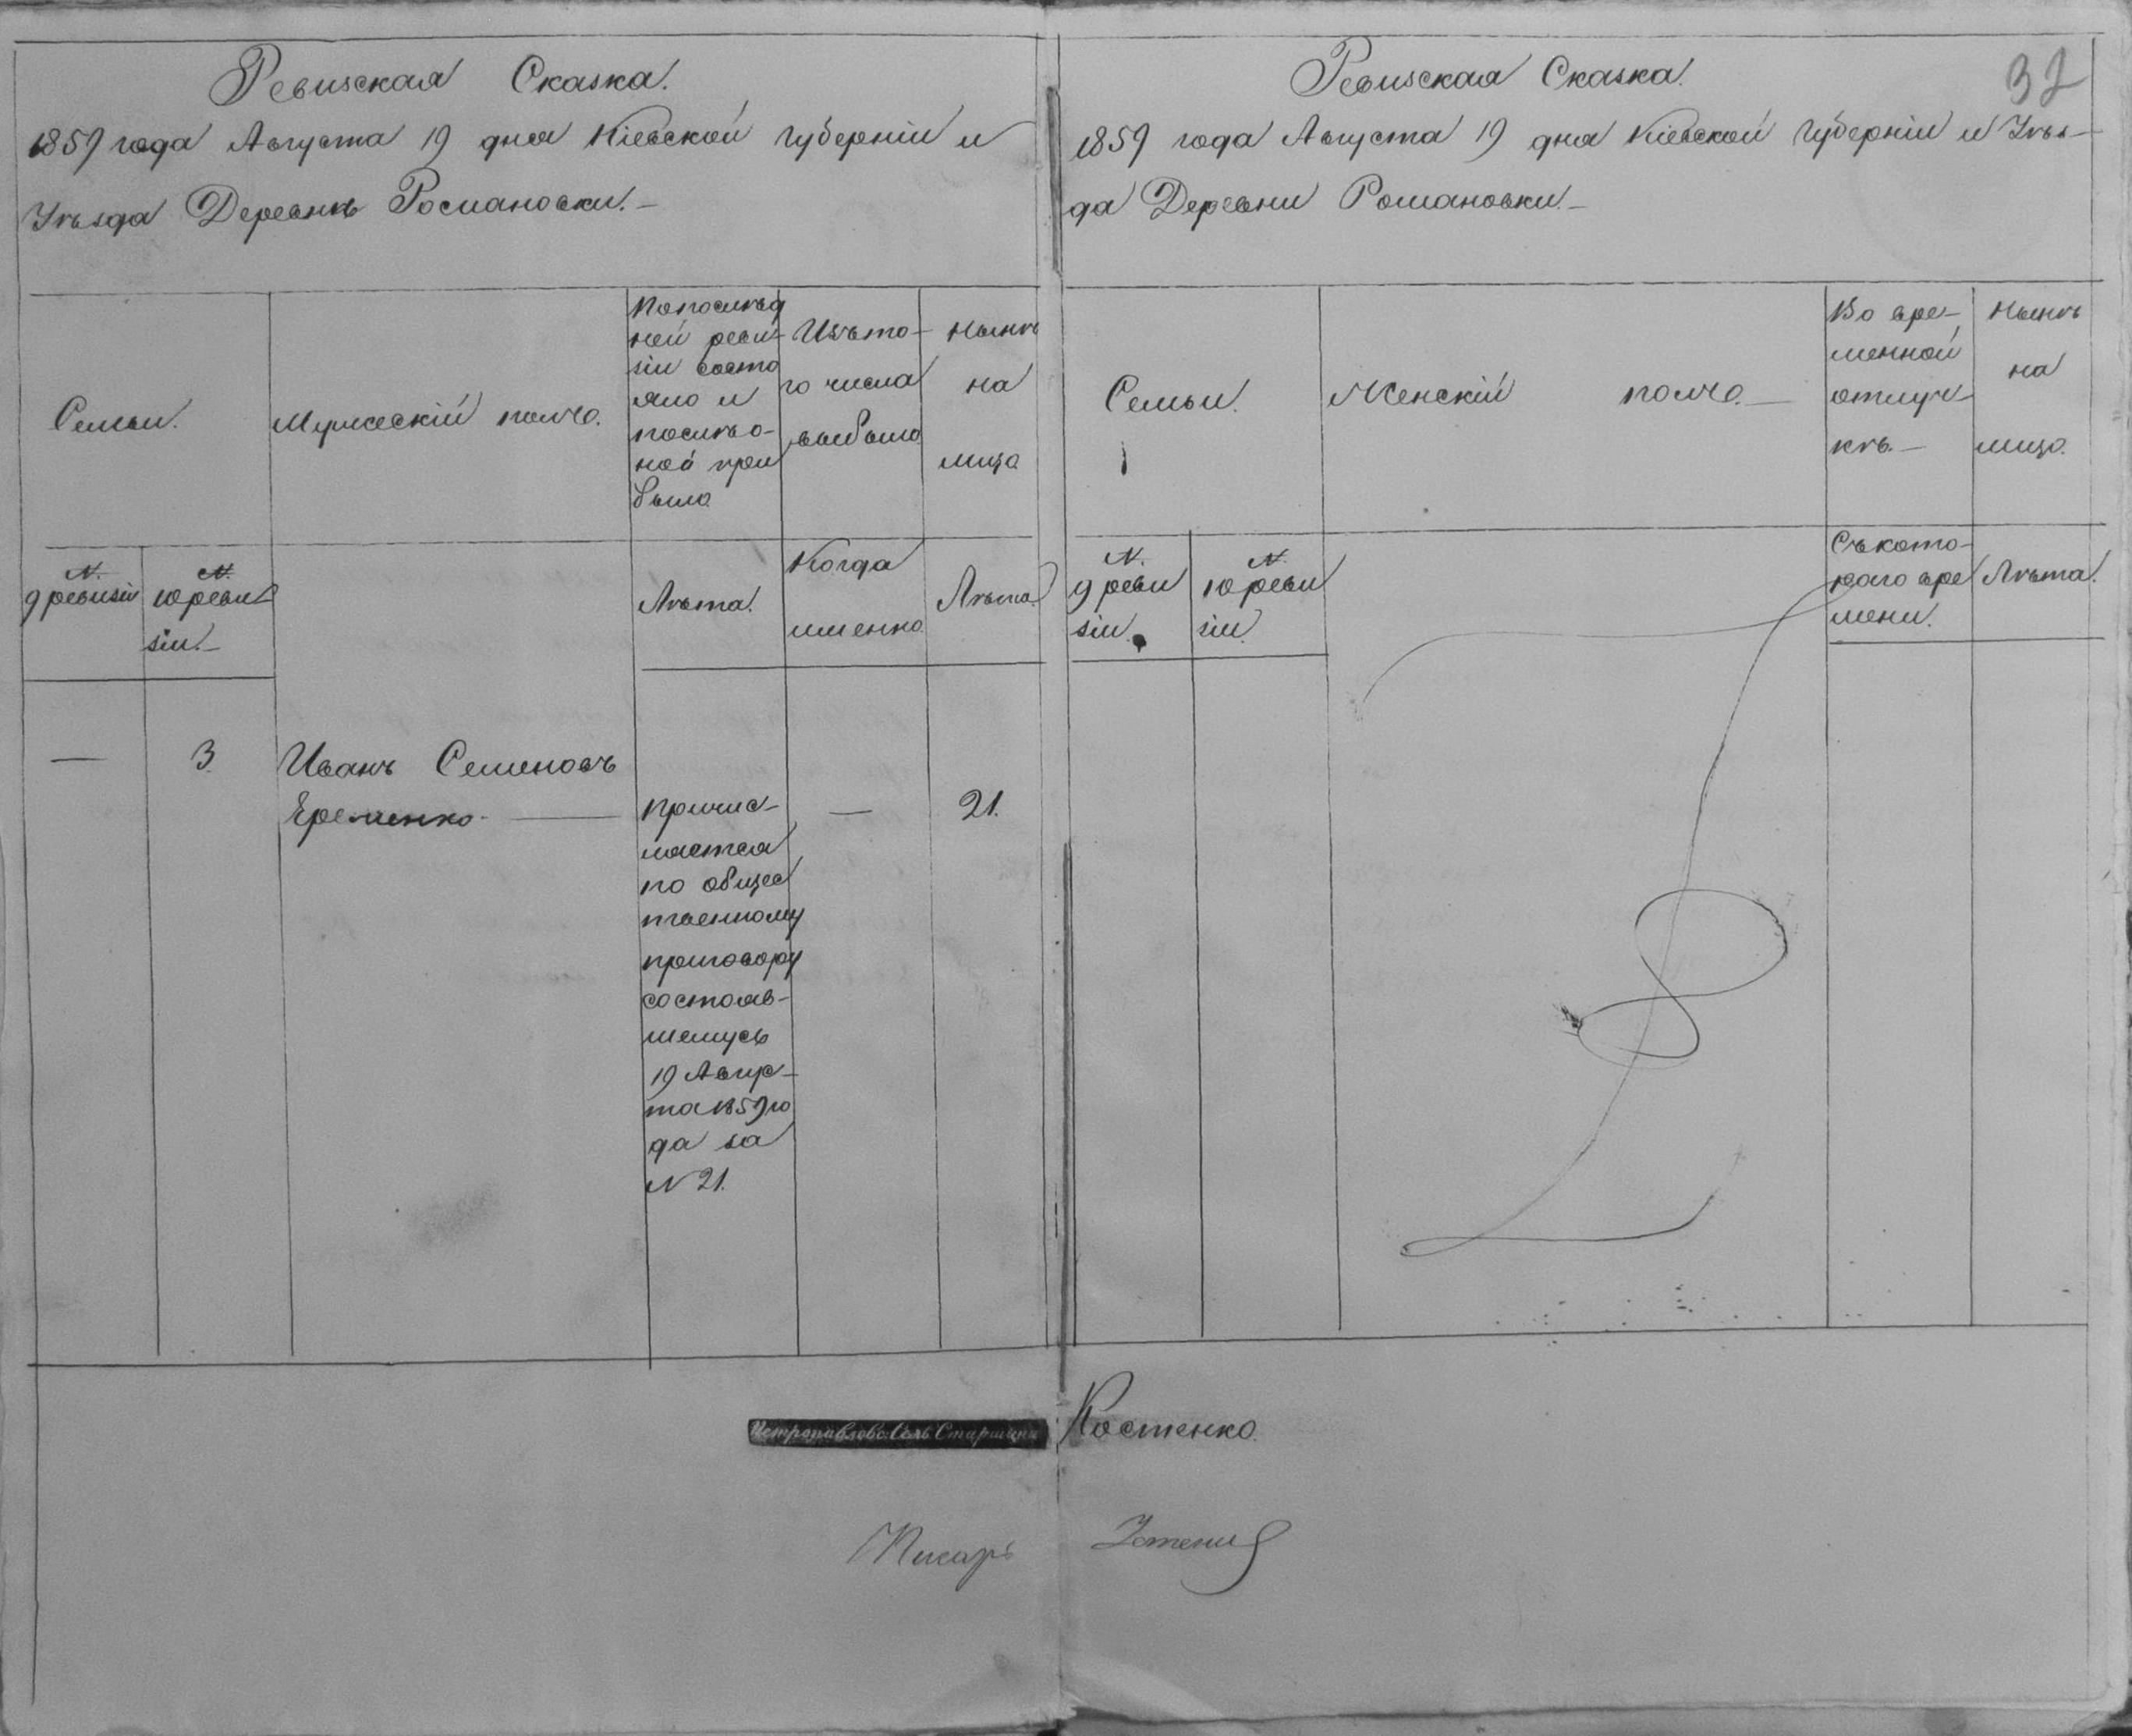 Ревизская Сказка.
1859 года Августа 19 дня Кіевской Губерніи и
Уѣзда Деревнѣ Романовки.—
Семьи.
Мужескій полъ.
По послѣд
ней реви-
зіи состо
яло и
послѣ о-
ной при
было
Изъ то-
го числа
выбыло
Нынѣ
на
лицо
N.
9 ревизіи
N.
10 реви-
зіи.—
Лѣта.
Когда
именно.
Лѣта.
— 3. Иванъ Семеновъ
Еременко. —
Причис-
ляется
по общес
твенному
приговору
состояв-
шемусь
19 Авгус-
та 1859 го
да за
N 21.
— 21.
32
Ревизская Сказка.
1859 года Августа 19 дня Кіевской Губерніи и Уѣз-
да Деревни Романовки.—
Семьи.
Женскій полъ.—
Во вре-
менной
отлуч-
кѣ.—
Нынѣ
на
лицо.
N.
9 реви
зіи.
N.
10 реви
зіи.
Съ кото-
раго вре
мени.
Лѣта.
Петропавловс: Сель Старшина Костенко.
Писарь